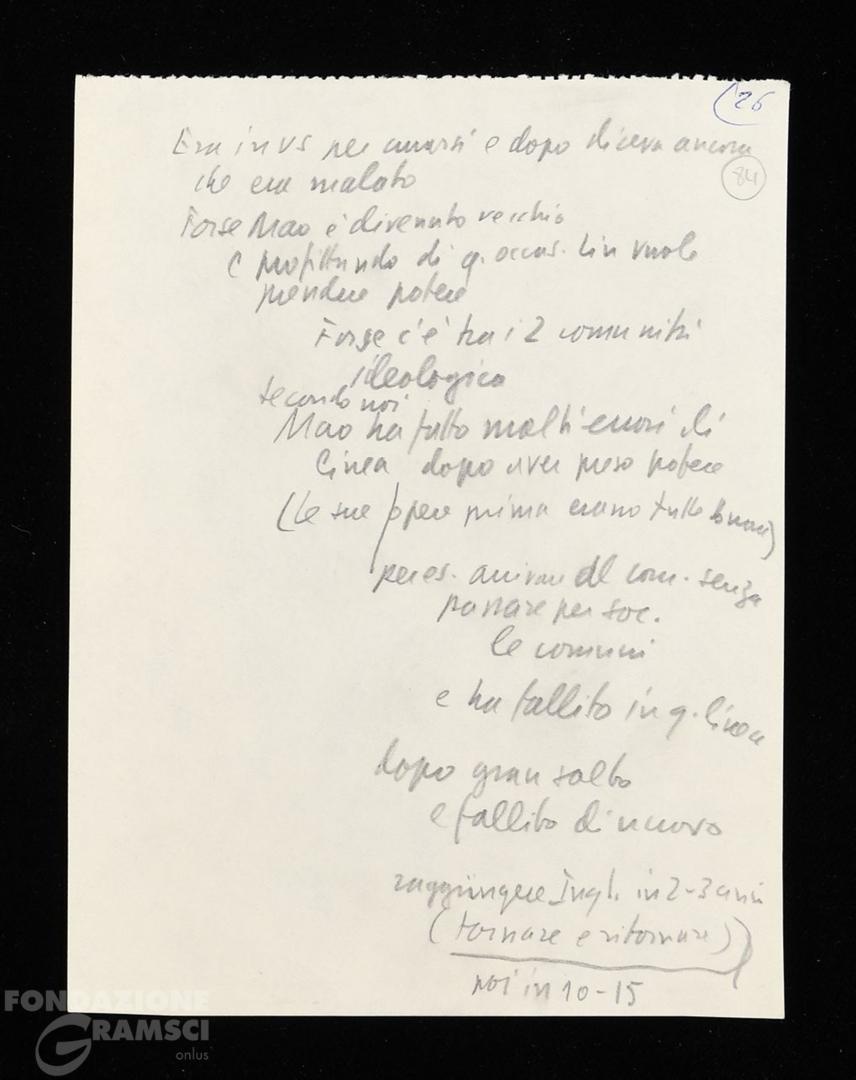 26
84
Era in US per curarsi e dopo diceva ancora
che era malato
Forse Mao è divenuto vecchio
e profittando di q. occas. Lin vuole
prendere potere
Forse c'è tra i 2 comunità
ideologica
secondo noi
Mao ha fatto molti errori di
linea dopo aver preso potere
(le sue opere prima erano tutte buone)
per es. arrivare al com. senza
passare per soc.
le comuni
e ha fallito in q. linea
dopo gran salto
e fallito di nuovo
raggiungere Ingl. in 2-3 anni
(tornare e ritornare)
poi in 10-15
FONDAZIONE
GRAMSCI
onlus